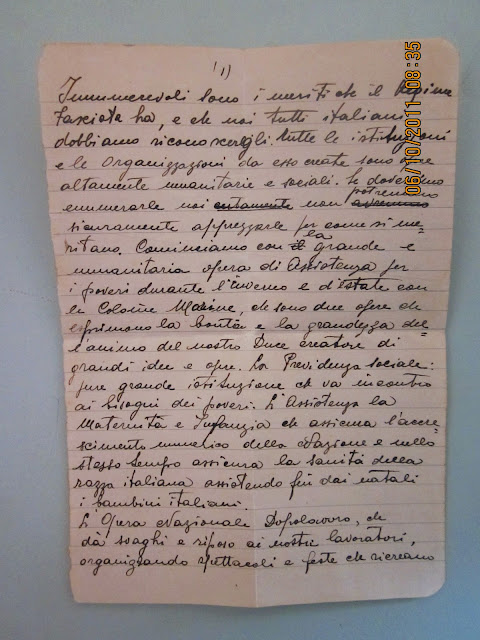 1)
Innumerevoli sono i meriti che il Regime
Fascista ha, e che noi tutti italiani
dobbiamo riconoscergli. Tutte le istituzioni
e le Organizzazioni da esso create sono opere
altamente umanitarie e sociali. Se dovessimo
enumerarle noi certamente non potremmo avremmo
sicuramente apprezzarle per come si me-
ritano. Cominciamo con il la grande e
umanitaria opera di Assistenza per
i poveri durante l'inverno e d'Estate con
le Colonie Marine, che sono due opere che
esprimono la bontà e la grandezza del-
l'animo del nostro Duce creatore di
grandi idee e opere. La Previdenza sociale:
pure grande istituzione che va incontro
ai bisogni dei poveri. L'Assistenza la
Maternità e Infanzia che assicura l'accre-
scimento numerico della Nazione e nello
stesso tempo assicura la sanità della
razza italiana assistendo fin dai natali
i bambini italiani.
L'Opera Nazionale Dopolavoro, che
dà svaghi e riposo ai nostri lavoratori,
organizzando spettacoli e feste che ricreano
06/10/2011 08:35